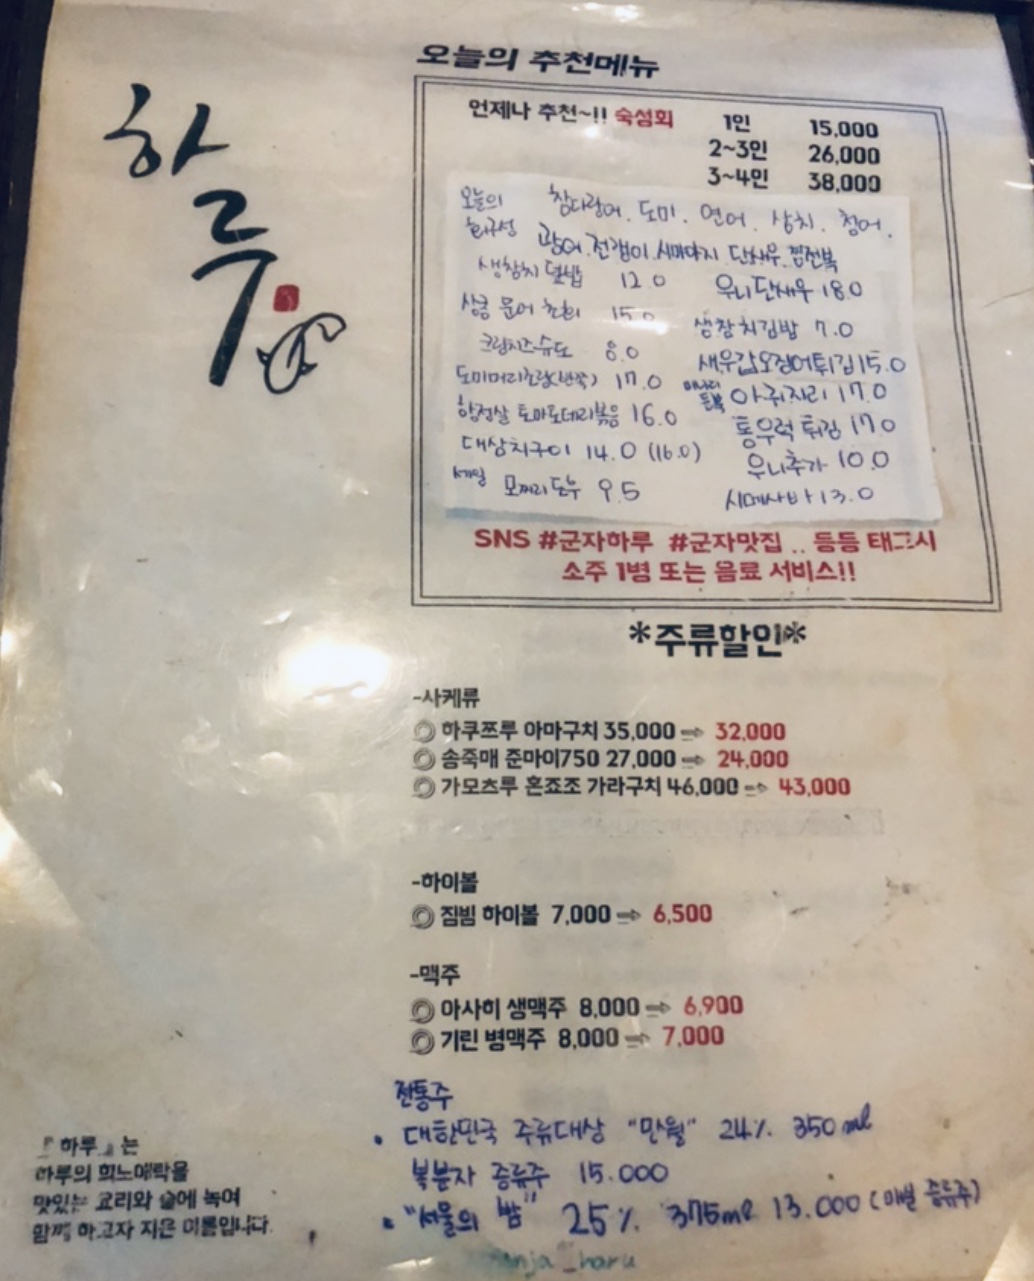 하루
오늘의 추천메뉴
언제나 추천~!! 숙성회 1인 15,000
2~3인 26,000
3~4인 38,000
오늘의 참다랑어. 도미. 연어. 삼치. 청어.
회구성 광어. 전갱이. 시마아지 단새우. 찜전복
생참치 덮밥 12.0 우니단새우 18.0
상큼 문어 초회 15.0 생참치김밥 7.0
크림치즈슈도 8.0 새우갑오징어튀김 15.0
도미머리조림(반쪽) 17.0 미나리듬뿍 아귀지리 17.0
항정살 토마토데리볶음 16.0 통우럭 튀김 17.0
대삼치구이 14.0 (16.0) 우니추가 10.0
세일 모찌리도후 9.5 시메사바 13.0
SNS #군자하루 #군자맛집 .. 등등 태그시
소주 1병 또는 음료 서비스!!
*주류할인*
-사케류
◎ 하쿠쯔루 아마구치 35,000 ⇒ 32,000
◎ 송죽매 준마이750 27,000 ⇒ 24,000
◎ 가모츠루 혼죠조 가라구치 46,000 ⇒ 43,000
-하이볼
◎ 짐빔 하이볼 7,000 ⇒ 6,500
-맥주
◎ 아사히 생맥주 8,000 ⇒ 6,900
◎ 기린 병맥주 8,000 ⇒ 7,000
전통주
• 대한민국 주류대상 "만월" 24% 350ml
복분자 증류주 15.000
• "서울의 밤" 25% 375ml 13.000 (매실 증류주)
『하루』는
하루의 희노애락을
맛있는 요리와 술에 녹여
함께 하고자 지은 이름입니다.